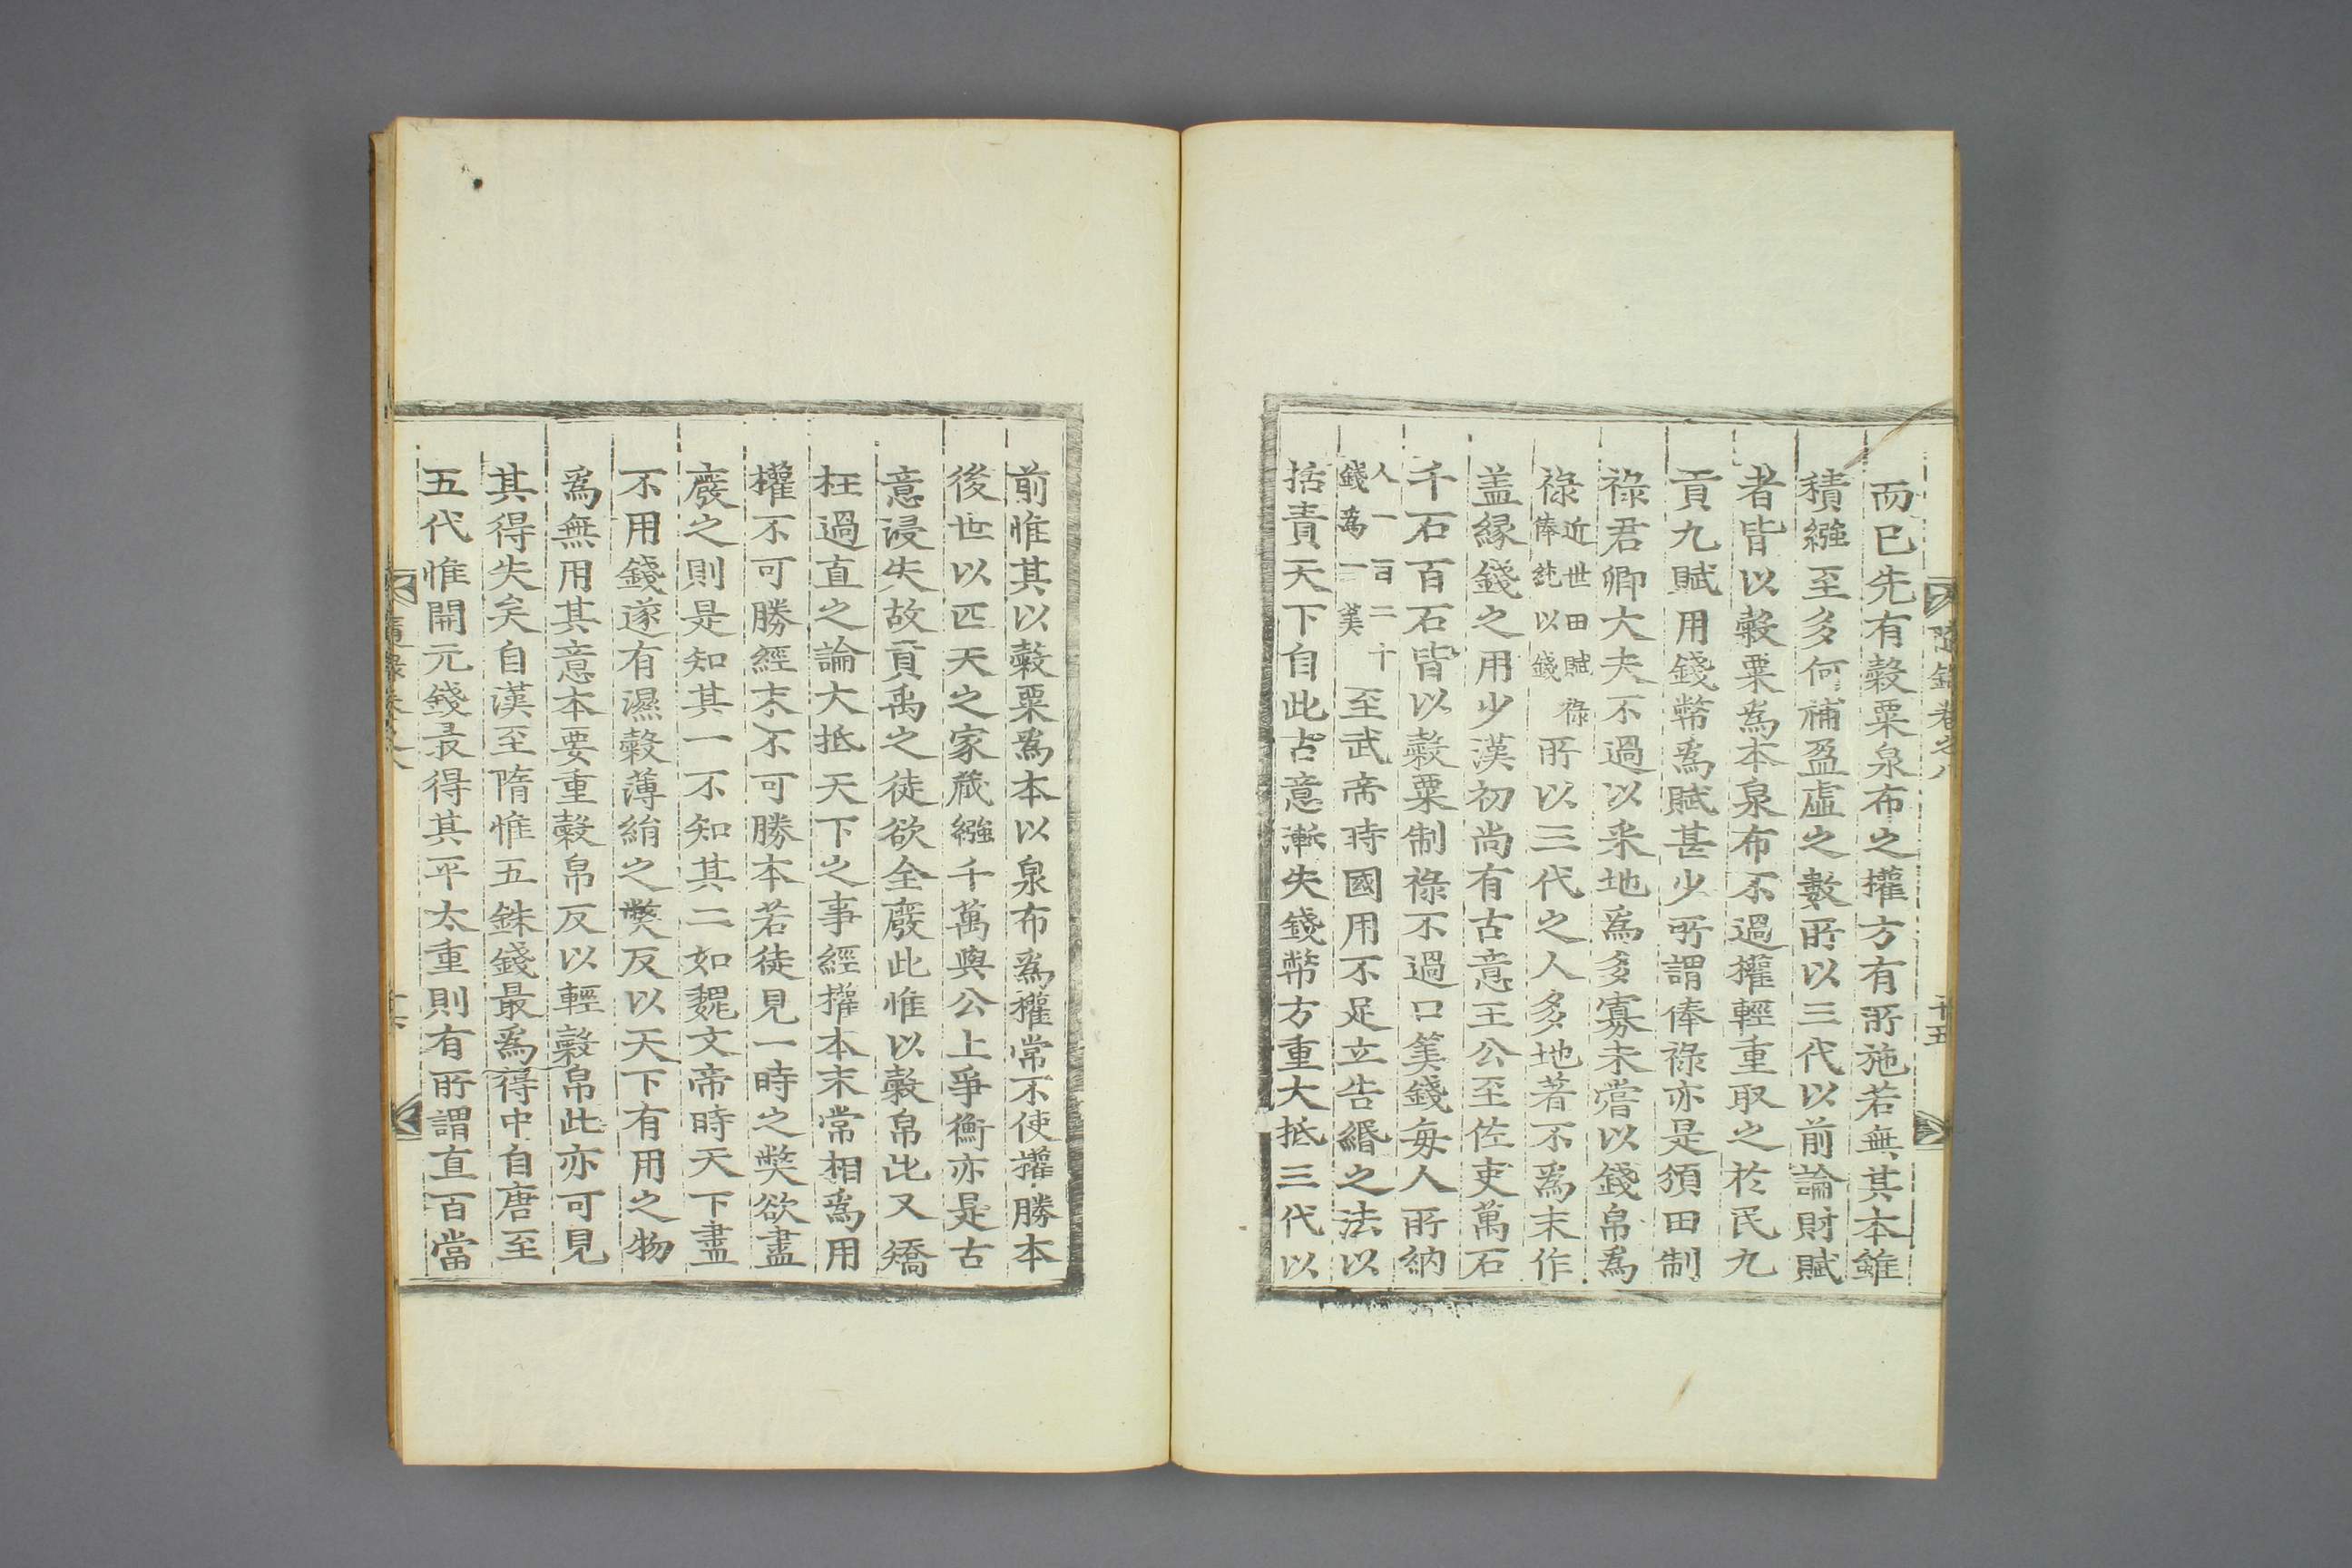 隨錄卷之八
二十五
而已先有穀粟泉布之權方有所施若無其本雖
積繦至多何補盈虛之數所以三代以前論財賦
者皆以穀粟爲本泉布不過權輕重取之於民九
貢九賦用錢幣爲賦甚少所謂俸祿亦是頒田制
祿君卿大夫不過以采地爲多寡未嘗以錢帛爲
祿近世田賦祿俸純以錢所以三代之人多地著不爲末作
盖縁錢之用少漢初尚有古意王公至佐吏萬石
千石百石皆以穀粟制祿不過口筭錢每人所納
人一百二十錢爲一筭至武帝時國用不足立告緡之法以
括責天下自此古意漸失錢幣方重大抵三代以
前惟其以穀粟爲本以泉布爲權常不使權勝本
後世以匹夫之家藏繦千萬與公上爭衡亦是古
意浸失故貢禹之徒欲全廢此惟以穀帛此又矯
枉過直之論大抵天下之事經權本末常相爲用
權不可勝經末不可勝本若徒見一時之獘欲盡
廢之則是知其一不知其二如魏文帝時天下盡
不用錢遂有濕穀薄絹之獘反以天下有用之物
爲無用其意本要重穀帛反以輕穀帛此亦可見
其得失矣自漢至隋惟五銖錢最爲得中自唐至
五代惟開元錢最得其平太重則有所謂直百當
隨錄卷之八